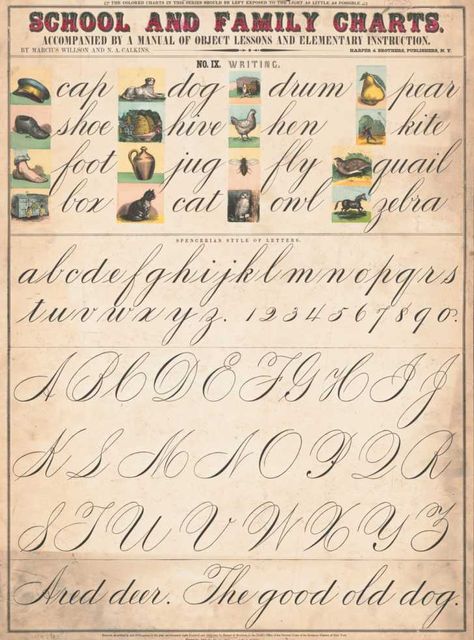 THE COLORED CHARTS IN THIS SERIES SHOULD BE LEFT EXPOSED TO THE LIGHT AS LITTLE AS POSSIBLE.
SCHOOL AND FAMILY CHARTS.
ACCOMPANIED BY A MANUAL OF OBJECT LESSONS AND ELEMENTARY INSTRUCTION.
BY MARCIUS WILLSON AND N. A. CALKINS. HARPER & BROTHERS, PUBLISHERS, N. Y.
NO. IX. WRITING.
cap dog drum pear
shoe hive hen kite
foot jug fly quail
box cat owl zebra
SPENCERIAN STYLE OF LETTERS.
a b c d e f g h i j k l m n o p q r s
t u v w x y z. 1 2 3 4 5 6 7 8 9 0.
A B C D E F G H I J
K L M N O P Q R
S T U V W X Y Z
A red deer. The good old dog.